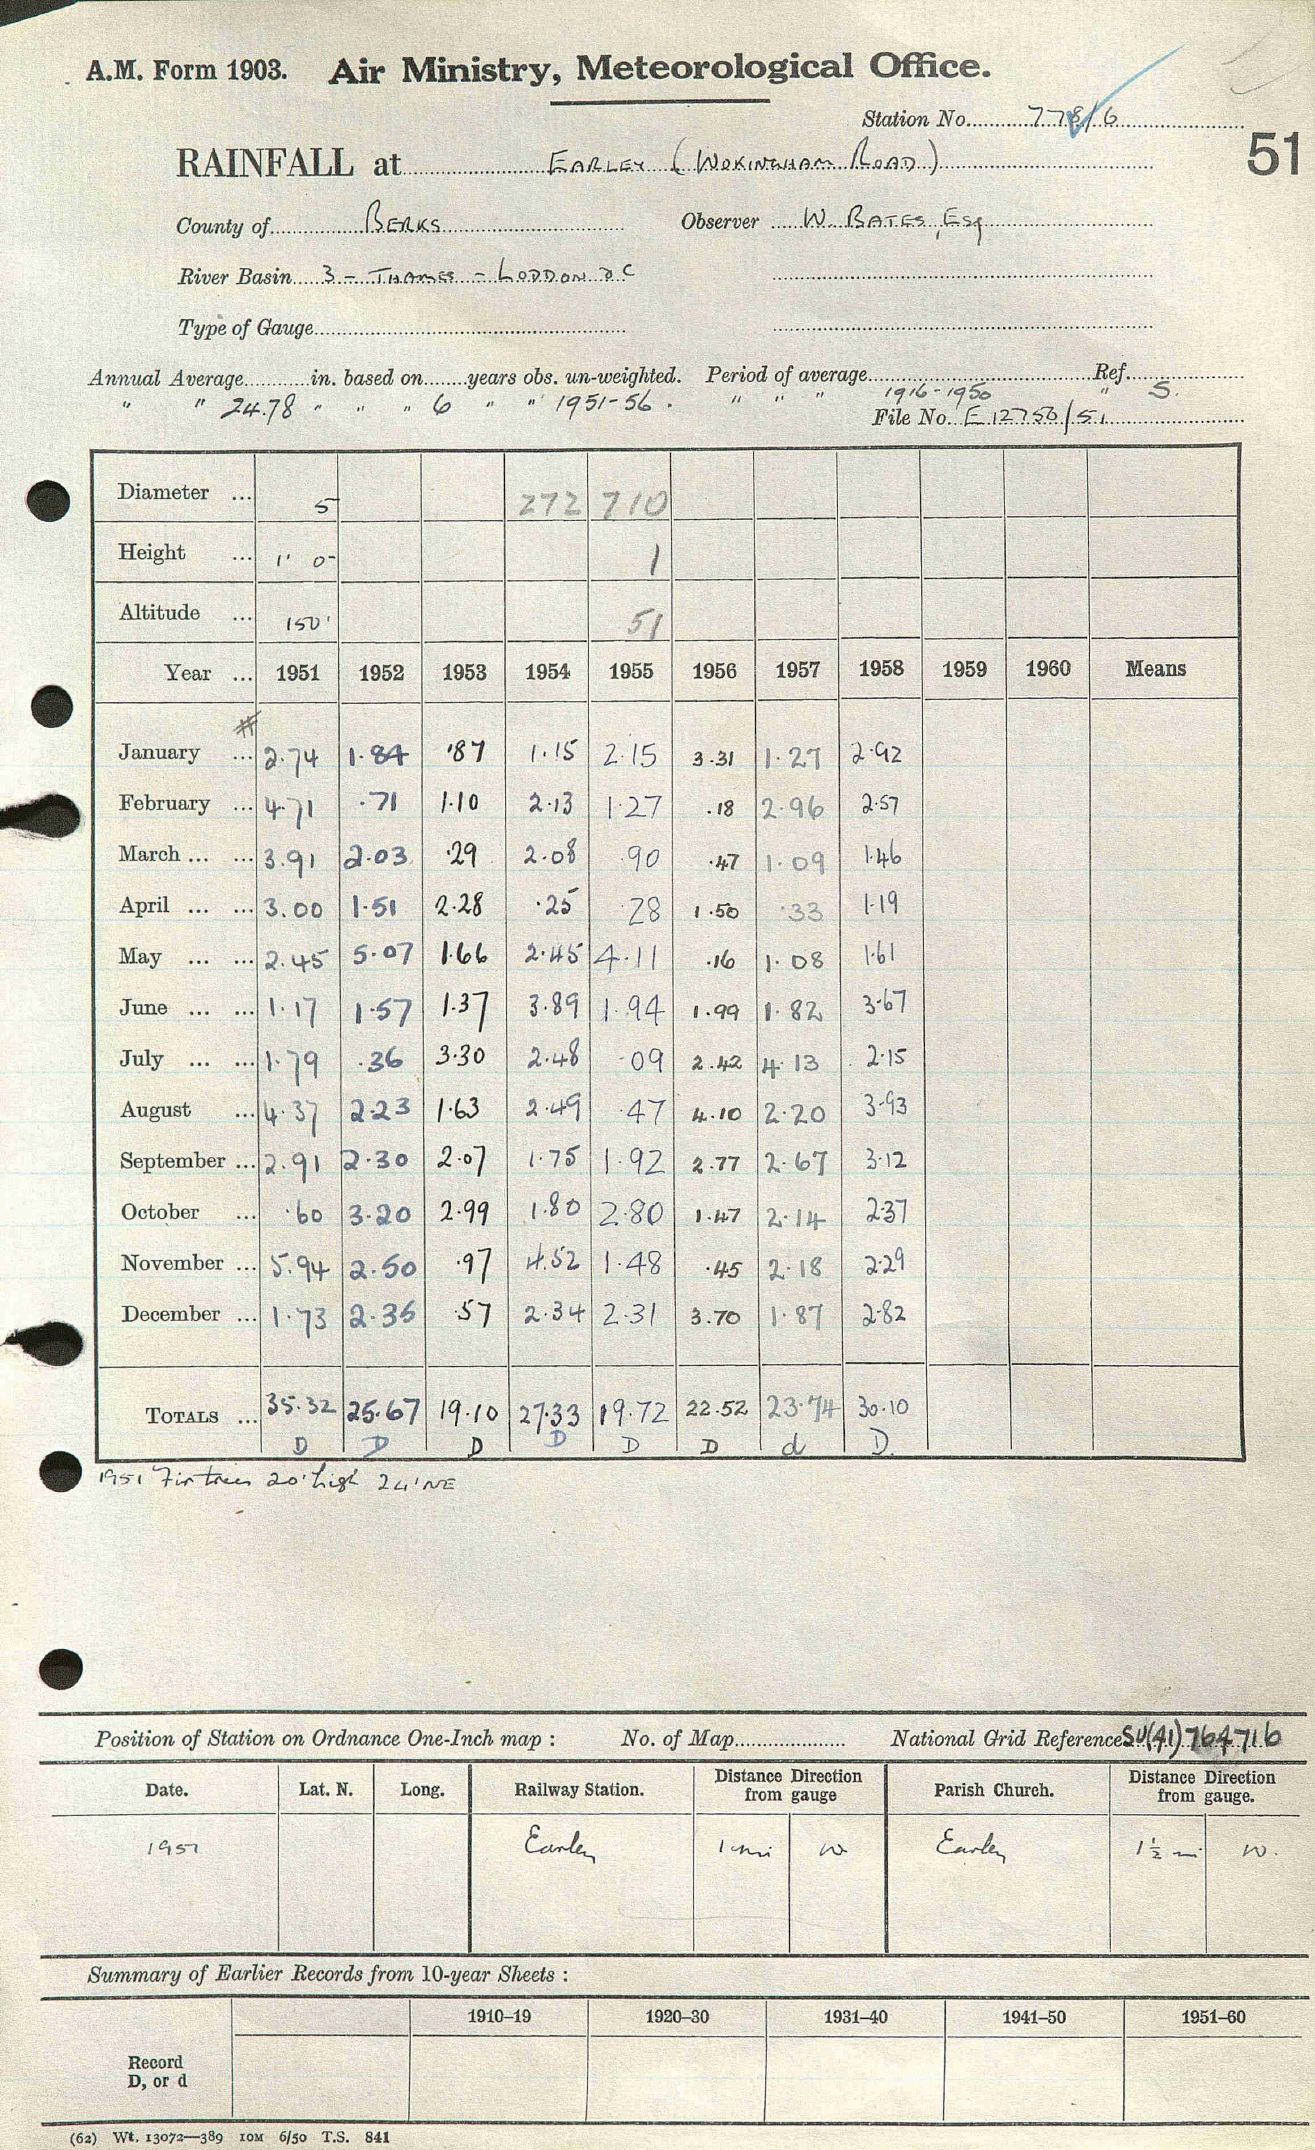 A.M. Form 1903. Air Ministry, Meteorological Office.
Station No. 778/6
51
RAINFALL at EARLEY (WOKINGHAM ROAD)
County of BERKS Observer W. BATES, Esq
River Basin 3 - THAMES - LODDON &C
Type of Gauge
Annual Average in. based on years obs. un-weighted. Period of average Ref.
" " 24.78 " " " 6 " " 1951-56. " " " 1916-1950 " S.
File No. E 12750/51
Diameter ... 5 272 710
Height ... 1' 0" 1
Altitude ... 150' 51
Year ... 1951 1952 1953 1954 1955 1956 1957 1958 1959 1960 Means
#
January ... 2.74 1.84 .87 1.15 2.15 3.31 1.27 2.92
February ... 4.71 .71 1.10 2.13 1.27 .18 2.96 2.57
March ... ... 3.91 2.03 .29 2.08 .90 .47 1.09 1.46
April ... ... 3.00 1.51 2.28 .25 28 1.50 .33 1.19
May ... ... 2.45 5.07 1.66 2.45 4.11 .16 1.08 1.61
June ... ... 1.17 1.57 1.37 3.89 1.94 1.99 1.82 3.67
July ... ... 1.79 .36 3.30 2.48 .09 2.42 4.13 2.15
August ... 4.37 2.23 1.63 2.49 .47 4.10 2.20 3.93
September ... 2.91 2.30 2.07 1.75 1.92 2.77 2.67 3.12
October ... .60 3.20 2.99 1.80 2.80 1.47 2.14 2.37
November ... 5.94 2.50 .97 4.52 1.48 .45 2.18 2.29
December ... 1.73 2.35 .57 2.34 2.31 3.70 1.87 2.82
TOTALS ... 35.32 25.67 19.10 27.33 19.72 22.52 23.74 30.10
D D D D D D d D.
1951 Fir trees 20' high 24' NE
Position of Station on Ordnance One-Inch map : No. of Map National Grid Reference SU(41) 764716
Date. Lat. N. Long. Railway Station. Distance Direction from gauge Parish Church. Distance Direction from gauge.
1951 Earley 1 mi W Earley 1½ mi W.
Summary of Earlier Records from 10-year Sheets :
1910–19 1920–30 1931–40 1941–50 1951–60
Record
D, or d
(62) Wt. 13072—389 10M 6/50 T.S. 841